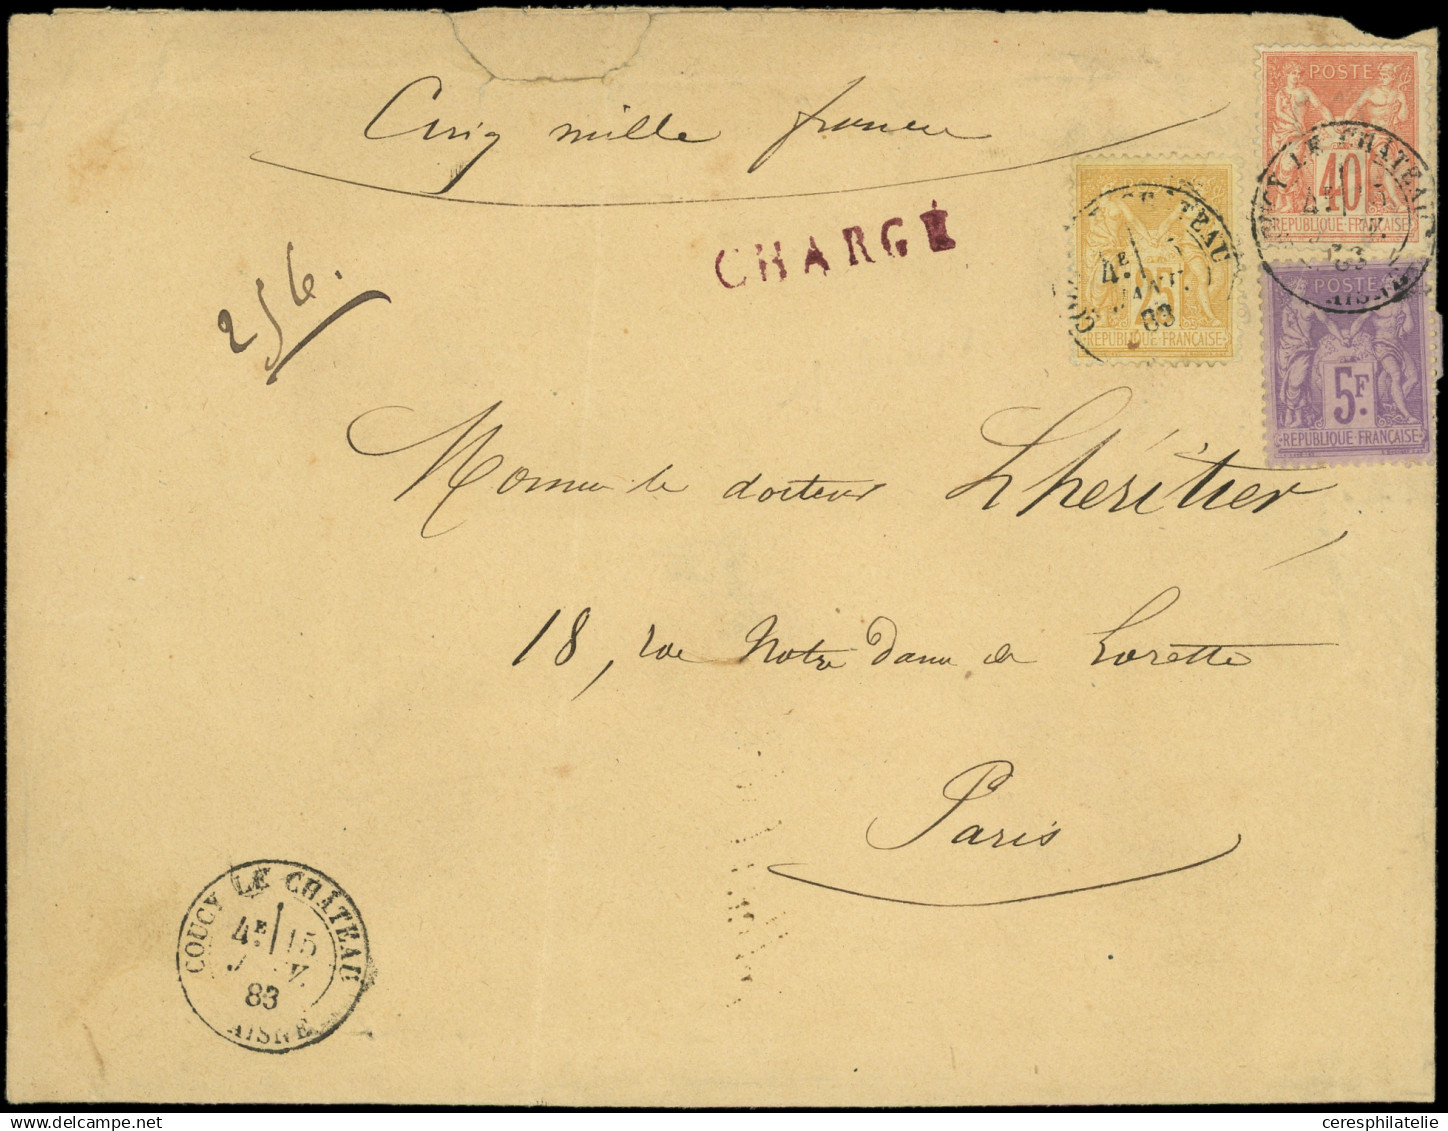 Cinq mille francs
CHARGÉ
POSTE
40
REPUBLIQUE FRANÇAISE
COUCY LE CHATEAU
4E
83
25
REPUBLIQUE FRANÇAISE
4E
JANV.
83
POSTE
5F
REPUBLIQUE FRANÇAISE
Monsieur le docteur Lhéritier,
18, rue Notre Dame de Lorette
Paris
COUCY LE CHATEAU
4E 15
83
AISNE
www.delcampe.net
ceresphilatelie